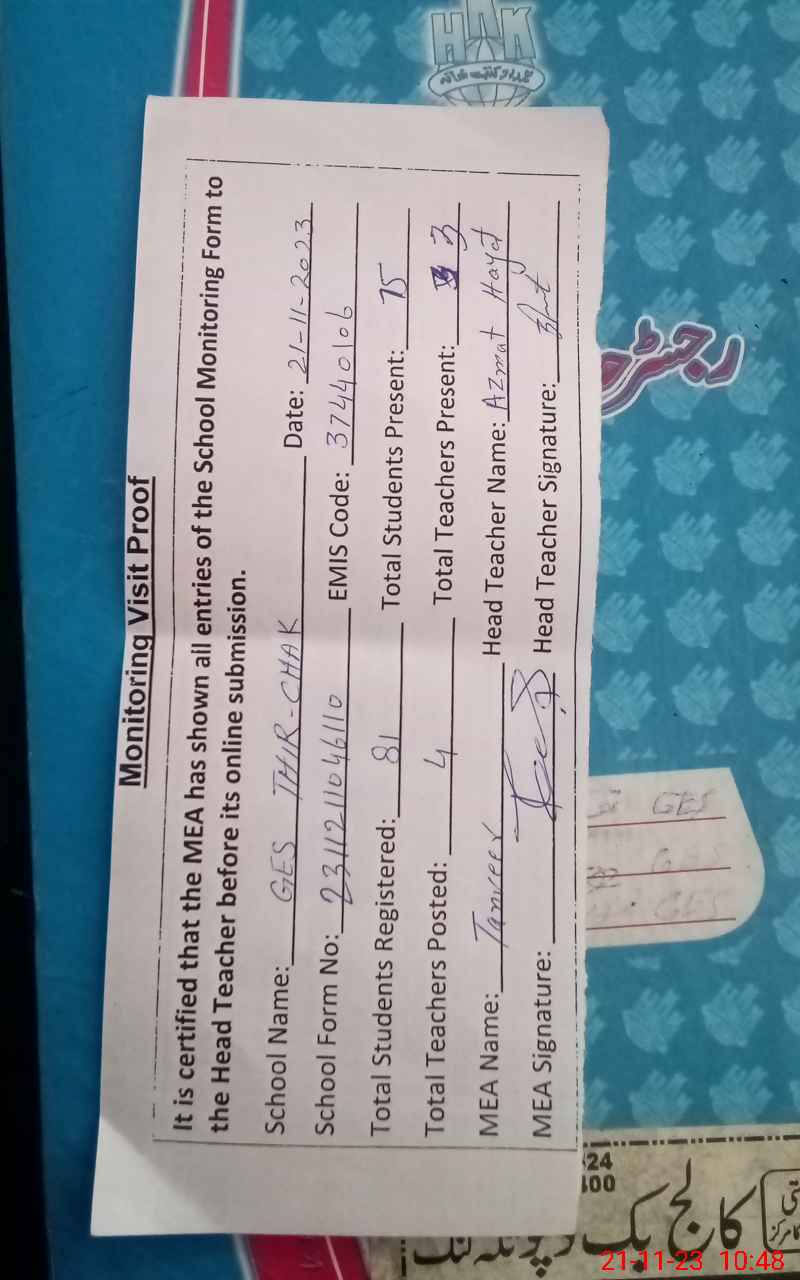 Monitoring Visit Proof
It is certified that the MEA has shown all entries of the School Monitoring Form to
the Head Teacher before its online submission.
School Name: GES THIR-CHAK Date: 21-11-2023
School Form No: 2311211046110 EMIS Code: 37440106
Total Students Registered: 81 Total Students Present: 75
Total Teachers Posted: 4 Total Teachers Present: 3
MEA Name: Tanveer Head Teacher Name: Azmat Hayat
MEA Signature: Head Teacher Signature:
HAK
رجسٹر
GES
GES
GES
24
400
کالج بک
21-11-23 10:48